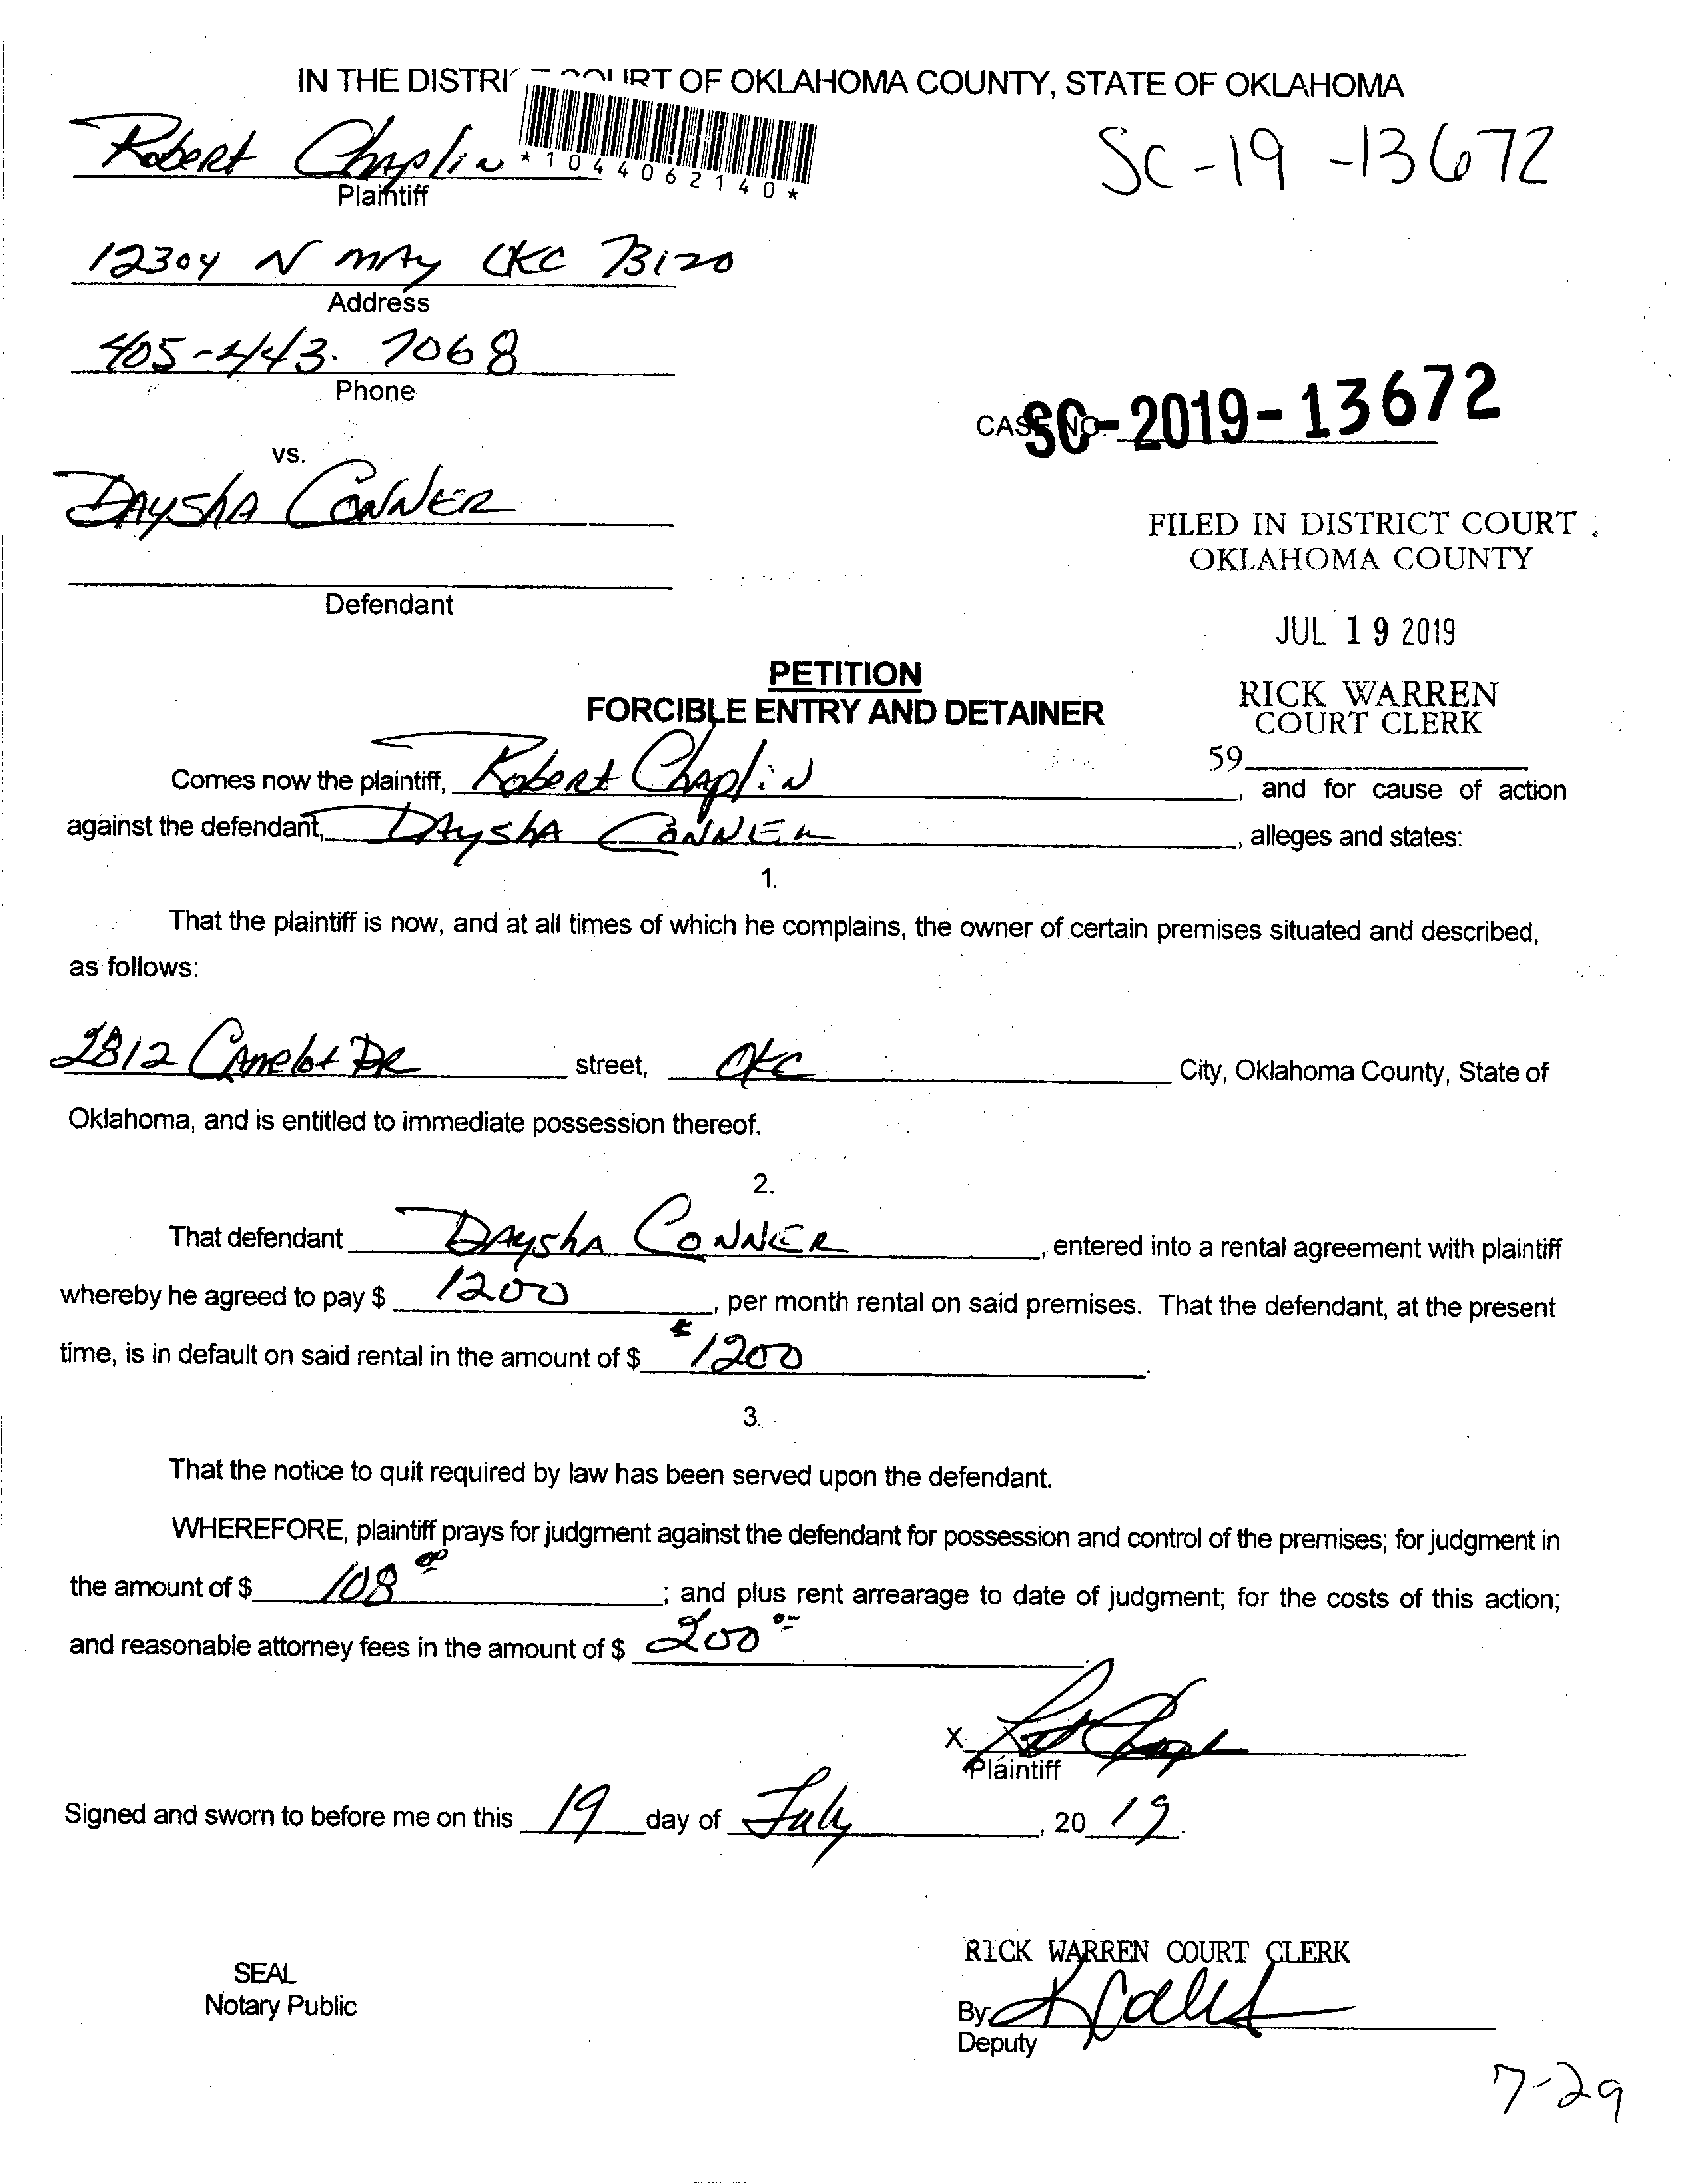 IN THE DISTRI COURT OF OKLAHOMA COUNTY, STATE OF OKLAHOMA
Robert Chaplin
*1044062140*
SC-19-13672
Plaintiff
12304 N MAY OKC 73120
Address
405-443-7068
Phone
CASE NO. SC-2019-13672
vs.
DAYSHA CONNER
FILED IN DISTRICT COURT
OKLAHOMA COUNTY
Defendant
JUL 19 2019
PETITION
FORCIBLE ENTRY AND DETAINER
RICK WARREN
COURT CLERK
59
Comes now the plaintiff, Robert Chaplin, and for cause of action
against the defendant, DAYSHA CONNER, alleges and states:
1.
That the plaintiff is now, and at all times of which he complains, the owner of certain premises situated and described,
as follows:
2812 Camelot DR street, OKC City, Oklahoma County, State of
Oklahoma, and is entitled to immediate possession thereof.
2.
That defendant DAYSHA CONNER, entered into a rental agreement with plaintiff
whereby he agreed to pay $ 1200, per month rental on said premises. That the defendant, at the present
time, is in default on said rental in the amount of $ 1200.
3.
That the notice to quit required by law has been served upon the defendant.
WHEREFORE, plaintiff prays for judgment against the defendant for possession and control of the premises; for judgment in
the amount of $ 108 00; and plus rent arrearage to date of judgment; for the costs of this action;
and reasonable attorney fees in the amount of $ 200 00.
X
Plaintiff
Signed and sworn to before me on this 19 day of July, 20 19.
RICK WARREN COURT CLERK
SEAL
Notary Public
By
Deputy
7-29